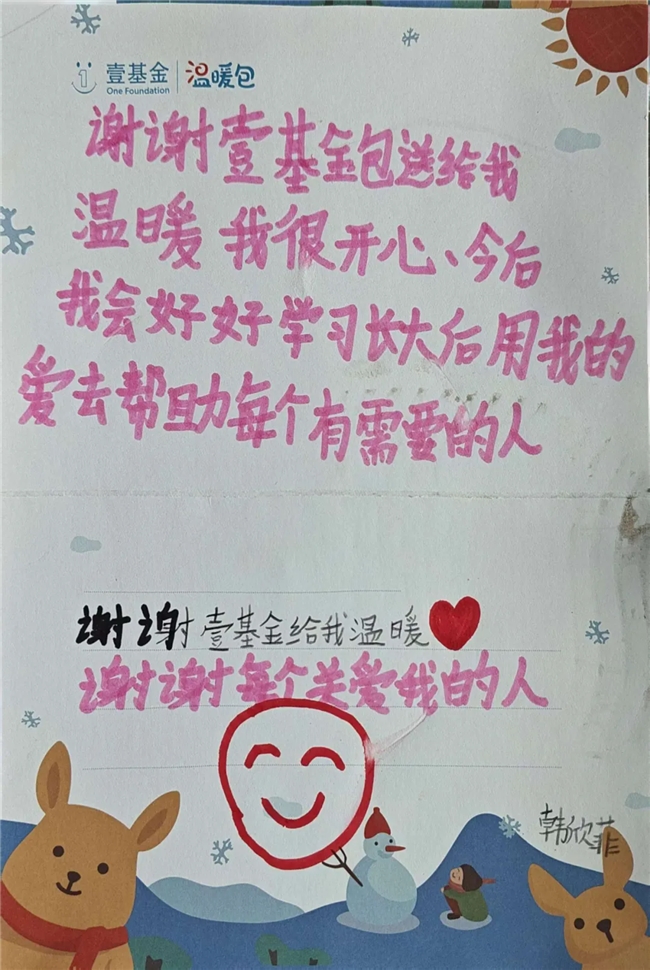 壹基金 温暖包
One Foundation
谢谢壹基金包送给我
温暖我很开心、今后
我会好好学习长大后用我的
爱去帮助每个有需要的人
谢谢壹基金给我温暖
谢谢每个关爱我的人
韩欣菲